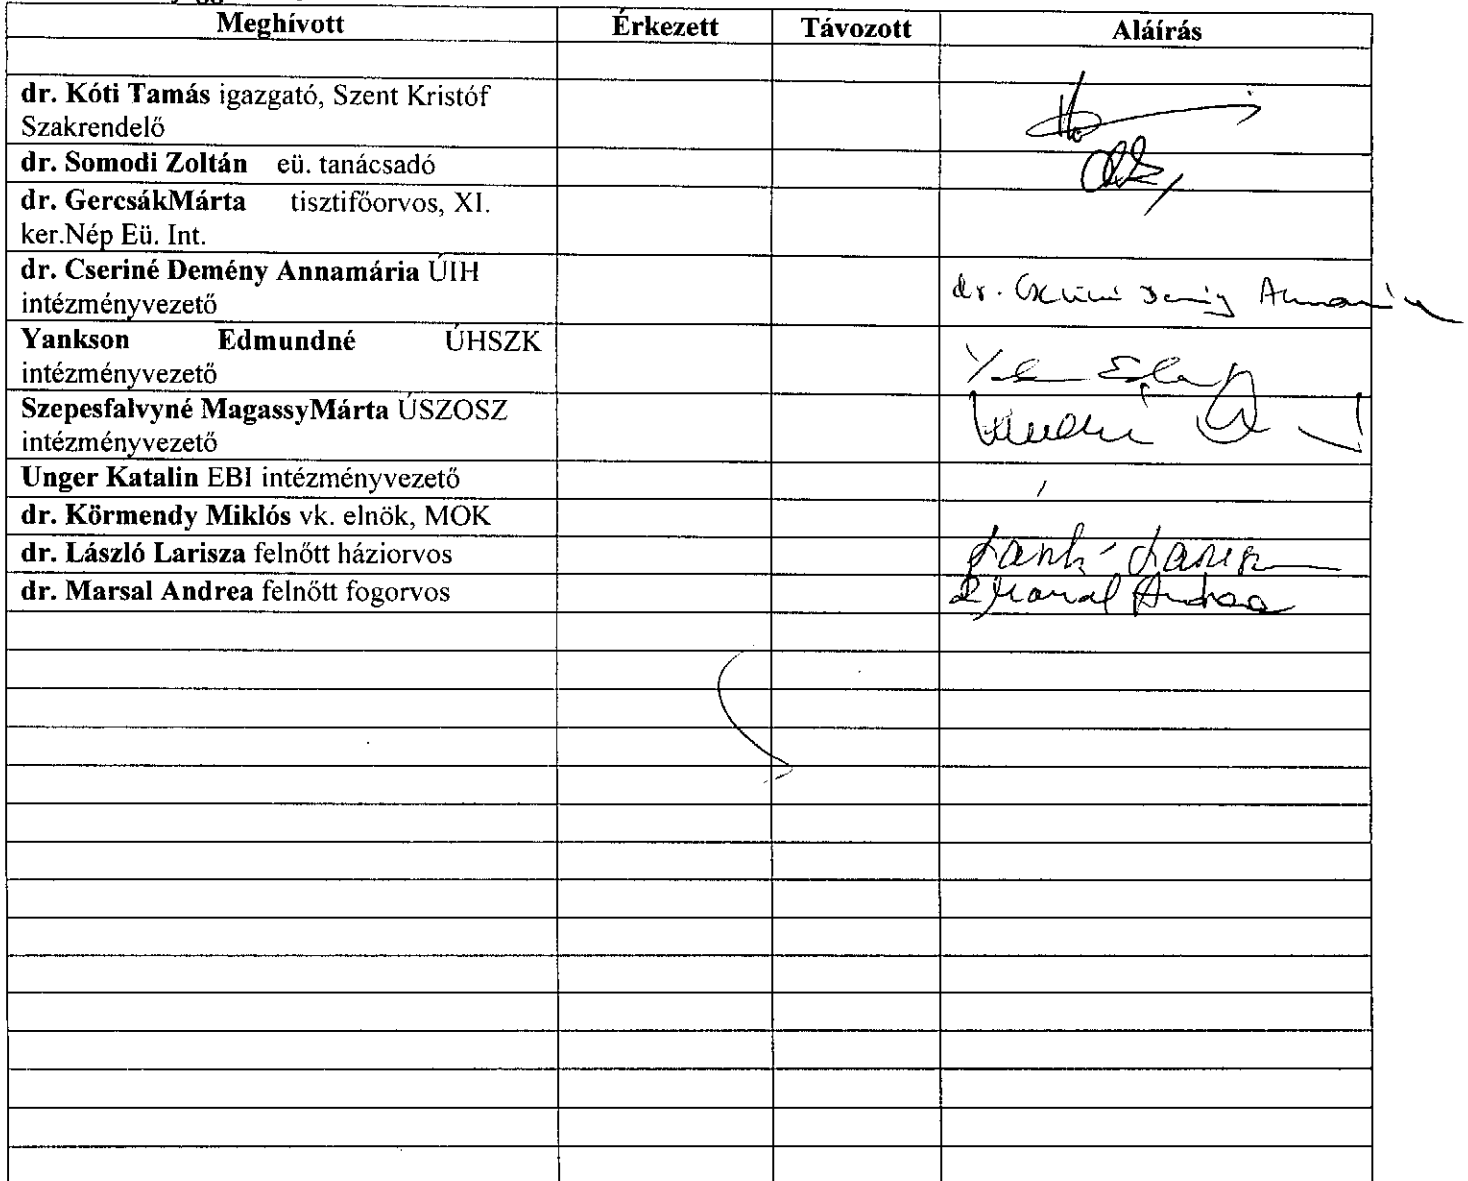 Meghívott Érkezett Távozott Aláírás
dr. Kóti Tamás igazgató, Szent Kristóf
Szakrendelő
dr. Somodi Zoltán eü. tanácsadó
dr. GercsákMárta tisztifőorvos, XI.
ker.Nép Eü. Int.
dr. Cseriné Demény Annamária ÚIH
intézményvezető
dr. Annamária
Yankson Edmundné ÚHSZK
intézményvezető
Szepesfalvyné MagassyMárta ÚSZOSZ
intézményvezető
Unger Katalin EBI intézményvezető
dr. Körmendy Miklós vk. elnök, MOK
dr. László Larisza felnőtt háziorvos
dr. Marsal Andrea felnőtt fogorvos
Marsal Andrea